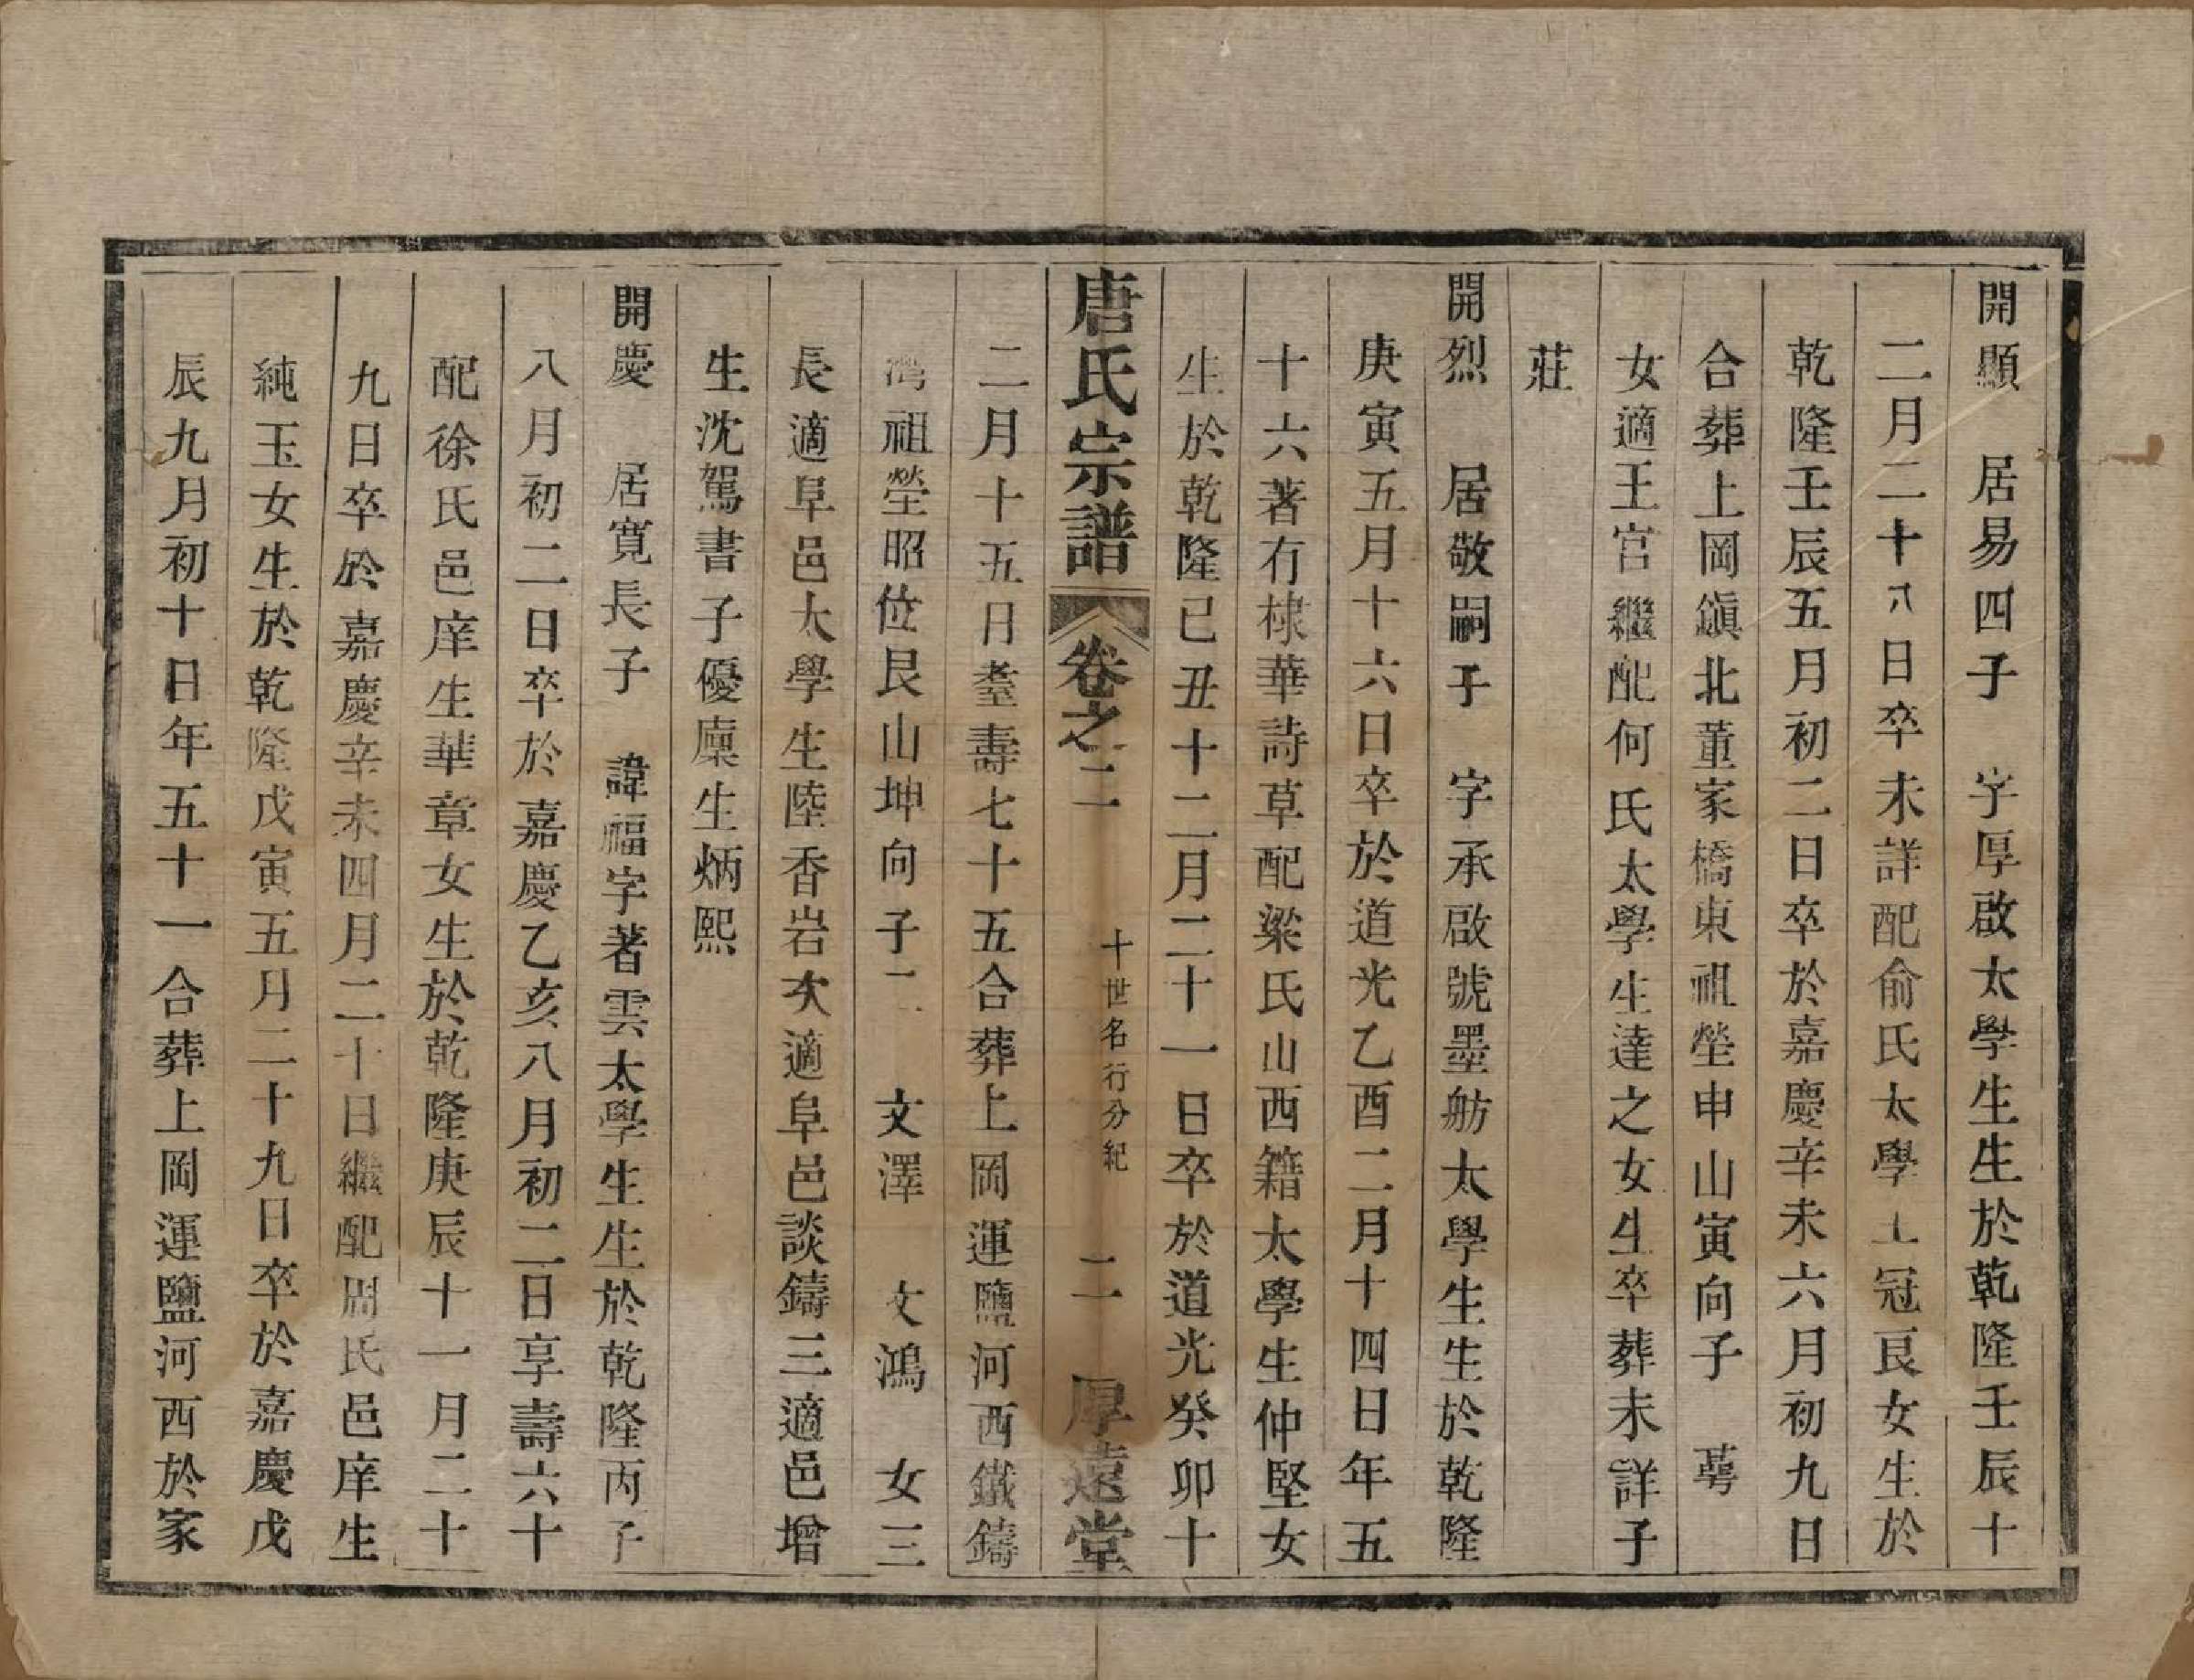 開顯　居易四子　字厚啟太學生生於乾隆壬辰十
二月二十八日卒未詳配俞氏太學士冠艮女生於
乾隆壬辰五月初二日卒於嘉慶辛未六月初九日
合葬上岡鎭北董家橋東祖塋申山寅向子　萼
女適王宫繼配何氏太學生達之女生卒葬未詳子
莊
開烈　居敬嗣子　字承啟號墨舫太學生生於乾隆
庚寅五月十六日卒於道光乙酉二月十四日年五
十六著有棣華詩草配梁氏山西籍太學生仲堅女
生於乾隆己丑十二月二十一日卒於道光癸卯十
唐氏宗譜　卷之二　十世名行分紀　二　厚遠堂
二月十五日耋壽七十五合葬上岡運鹽河西鐵鑄
灣祖塋昭位艮山坤向子二　文澤　文鴻　女三
長適阜邑太學生陸香岩次適阜邑談鑄三適邑增
生沈駕書子優廩生炳熙
開慶　居寬長子　諱福字著雲太學生生於乾隆丙子
八月初二日卒於嘉慶乙亥八月初二日享壽六十
配徐氏邑庠生華章女生於乾隆庚辰十一月二十
九日卒於嘉慶辛未四月二十日繼配周氏邑庠生
純玉女生於乾隆戊寅五月二十九日卒於嘉慶戊
辰九月初十日年五十一合葬上岡運鹽河西於家